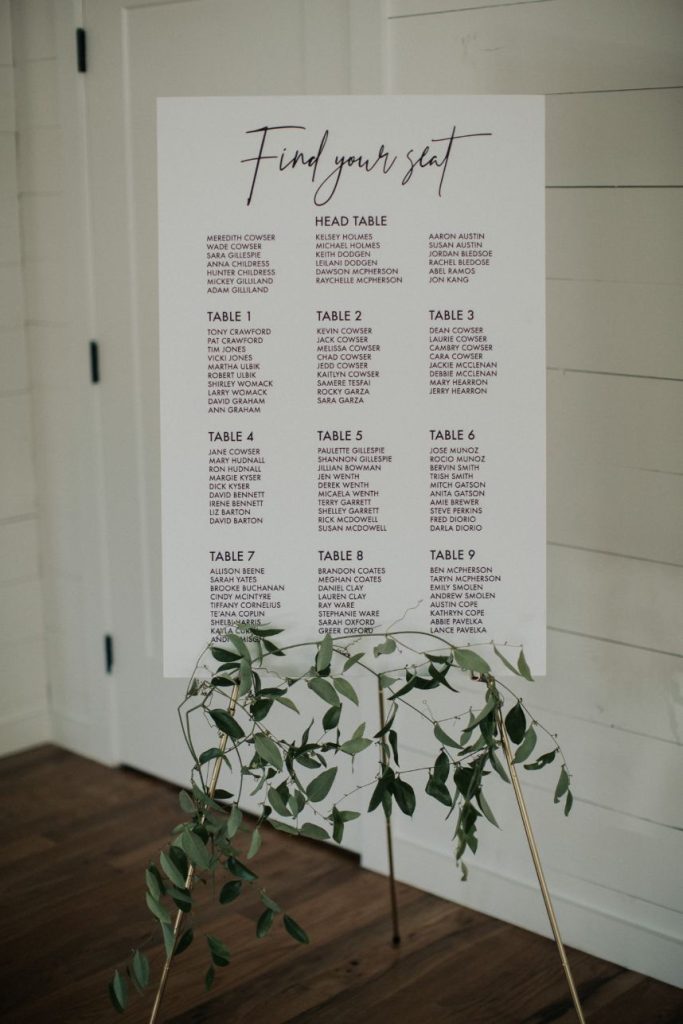 Find your seat
HEAD TABLE
MEREDITH COWSER
WADE COWSER
SARA GILLESPIE
ANNA CHILDRESS
HUNTER CHILDRESS
MICKEY GILLILAND
ADAM GILLILAND
KELSEY HOLMES
MICHAEL HOLMES
KEITH DODGEN
LEILANI DODGEN
DAWSON MCPHERSON
RAYCHELLE MCPHERSON
AARON AUSTIN
SUSAN AUSTIN
JORDAN BLEDSOE
RACHEL BLEDOSE
ABEL RAMOS
JON KANG
TABLE 1
TONY CRAWFORD
PAT CRAWFORD
TIM JONES
VICKI JONES
MARTHA ULBIK
ROBERT ULBIK
SHIRLEY WOMACK
LARRY WOMACK
DAVID GRAHAM
ANN GRAHAM
TABLE 2
KEVIN COWSER
JACK COWSER
MELISSA COWSER
CHAD COWSER
JEDD COWSER
KAITLYN COWSER
SAMERE TESFAI
ROCKY GARZA
SARA GARZA
TABLE 3
DEAN COWSER
LAURIE COWSER
CAMBRY COWSER
CARA COWSER
JACKIE MCCLENAN
DEBBIE MCCLENAN
MARY HEARRON
JERRY HEARRON
TABLE 4
JANE COWSER
MARY HUDNALL
RON HUDNALL
MARGIE KYSER
DICK KYSER
DAVID BENNETT
IRENE BENNETT
LIZ BARTON
DAVID BARTON
TABLE 5
PAULETTE GILLESPIE
SHANNON GILLESPIE
JILLIAN BOWMAN
JEN WENTH
DEREK WENTH
MICAELA WENTH
TERRY GARRETT
SHELLEY GARRETT
RICK MCDOWELL
SUSAN MCDOWELL
TABLE 6
JOSE MUNOZ
ROCIO MUNOZ
BERVIN SMITH
TRISH SMITH
MITCH GATSON
ANITA GATSON
AMIE BREWER
STEVE PERKINS
FRED DIORIO
DARLA DIORIO
TABLE 7
ALLISON BEENE
SARAH YATES
BROOKE BUCHANAN
CINDY MCINTYRE
TIFFANY CORNELIUS
TE'ANA COPLIN
SHELBI HARRIS
KAYLA
TABLE 8
BRANDON COATES
MEGHAN COATES
DANIEL CLAY
LAUREN CLAY
RAY WARE
STEPHANIE WARE
SARAH OXFORD
GREER OXFORD
TABLE 9
BEN MCPHERSON
TARYN MCPHERSON
EMILY SMOLEN
ANDREW SMOLEN
AUSTIN COPE
KATHRYN COPE
ABBIE PAVELKA
LANCE PAVELKA